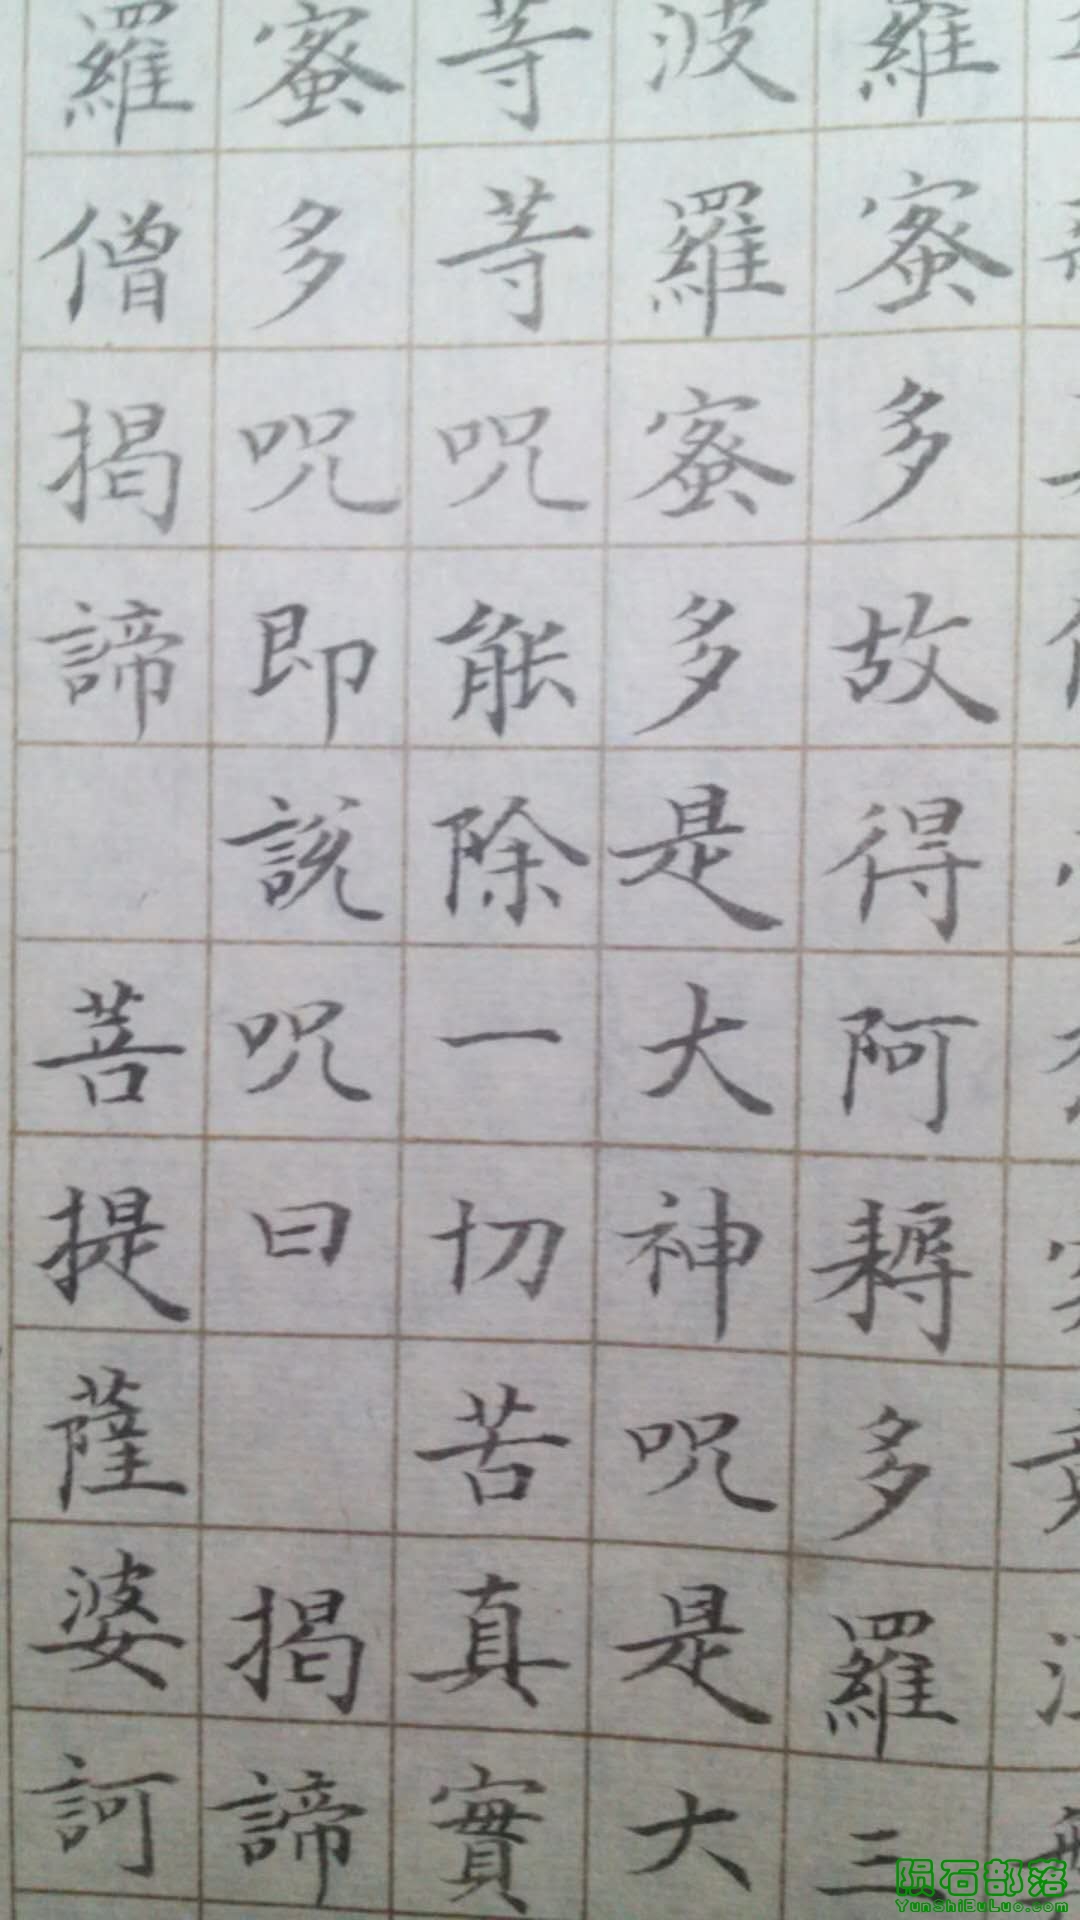 羅蜜多故得阿耨多羅三
波羅蜜多是大神呪是大
等等呪能除一切苦真實
蜜多呪即說呪曰 揭諦
羅僧揭諦 菩提薩婆訶
陨石部落
YunShiBuLuo.com